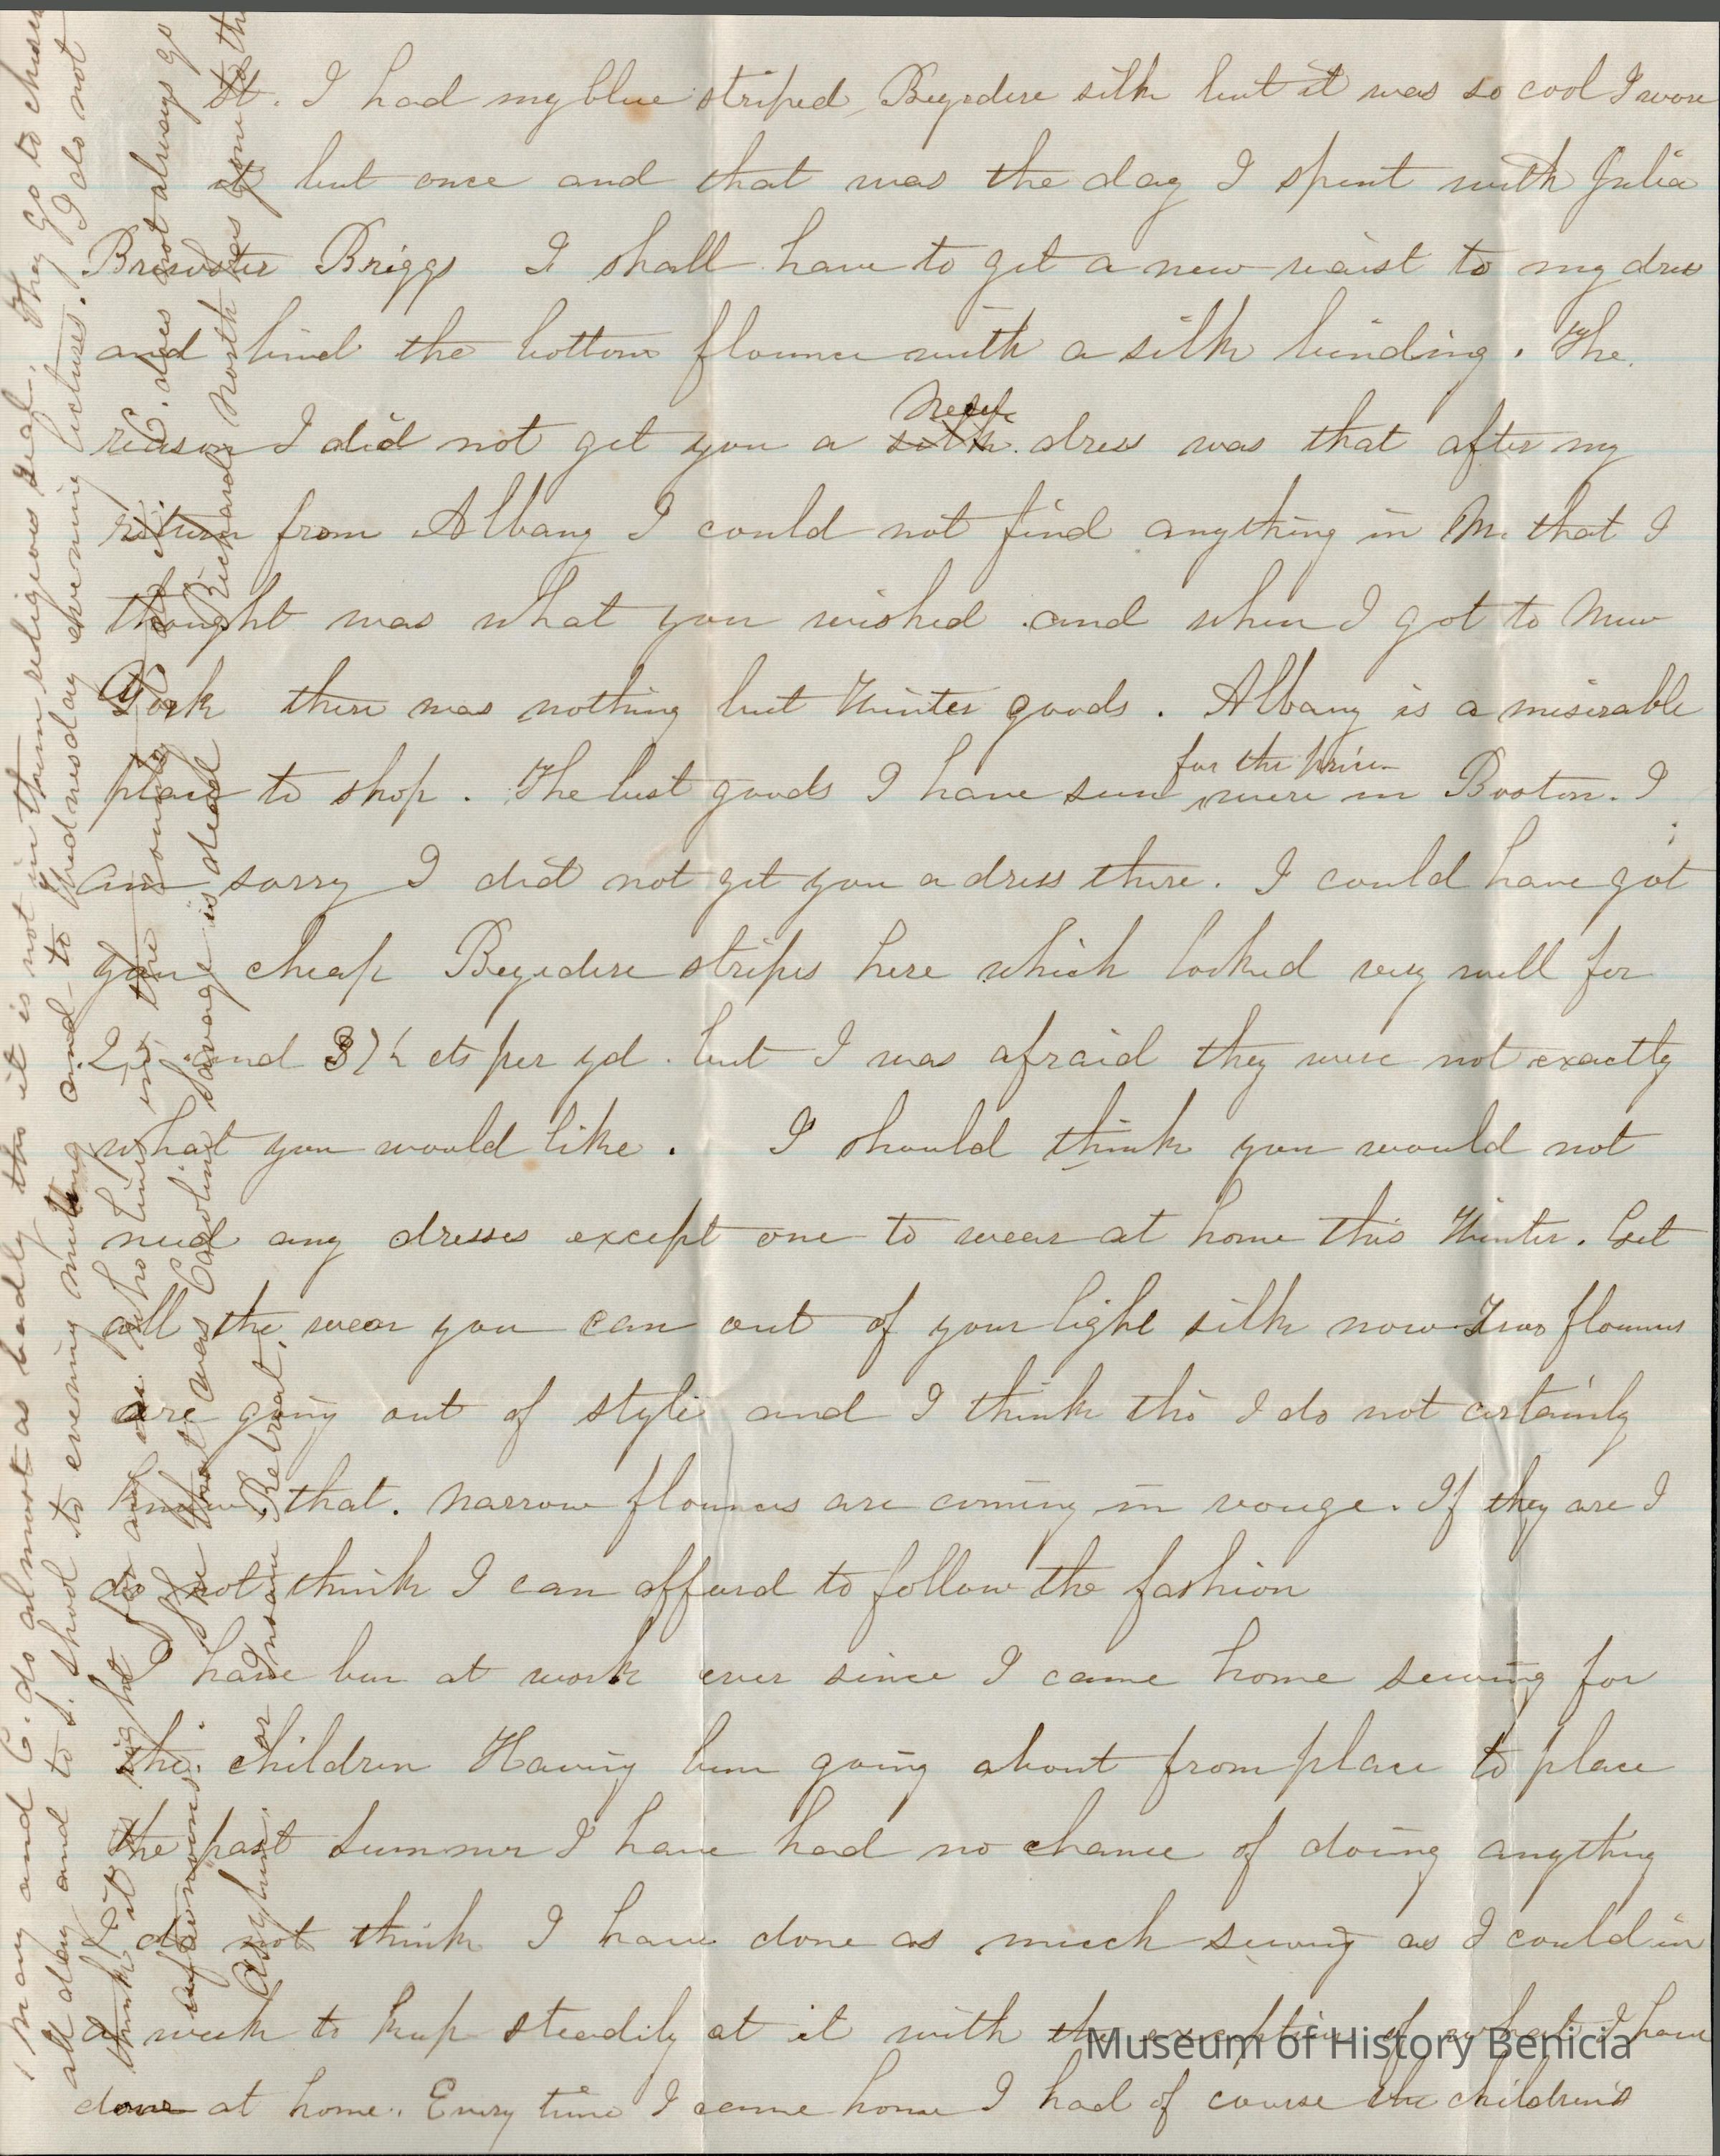 st. I had my blue striped Beyedere silk but it was so cool I wore
it but once and that was the day I spent with Julia
Brewster Briggs I shall have to get a new waist to my dress
and bind the bottom flounce with a silk binding. The
reason I did not get you a silk dress was that after my
return from Albany I could not find anything in M. that I
thought was what you wished and when I got to New
York there was nothing but Winter goods. Albany is a miserable
place to shop. The best goods I have seen for the price were in Boston. I
am sorry I did not get you a dress there. I could have got
you cheap Beyedere stripes here which looked very well for
and 37½ cts per yd. but I was afraid they were not exactly
what you would like. I should think you would not
need any dresses except one to wear at home this Winter. Get
all the wear you can out of your light silk now Two flounces
are going out of style and I think tho I do not certainly
know that. narrow flounces are coming in vouge. If they are I
do not think I can afford to follow the fashion
I have been at work ever since I came home sewing for
the children Having been going about from place to place
the past summer I have had no chance of doing anything
I do not think I have done as much sewing as I could in
a week to keep steadily at it with the exception of what I have
done at home. Every time I came home I had of course the children's
Mary and C. do almost as badly tho it is not in them religious zeal. They go to church
all day and to S. school to evening meeting and to Wednesday evening lectures. I do not
think it is right for any one who lives in the country C. does not always go
afternoons. The that was Caroline Savage is dead Richard North has gone to the
Insane Retreat, or
Asylum.
Museum of History Benicia